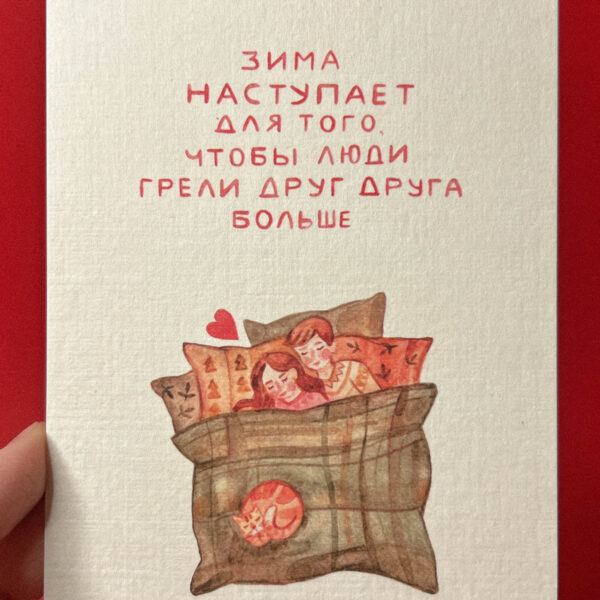 ЗИМА
НАСТУПАЕТ
ДЛЯ ТОГО,
ЧТОБЫ ЛЮДИ
ГРЕЛИ ДРУГ ДРУГА
БОЛЬШЕ